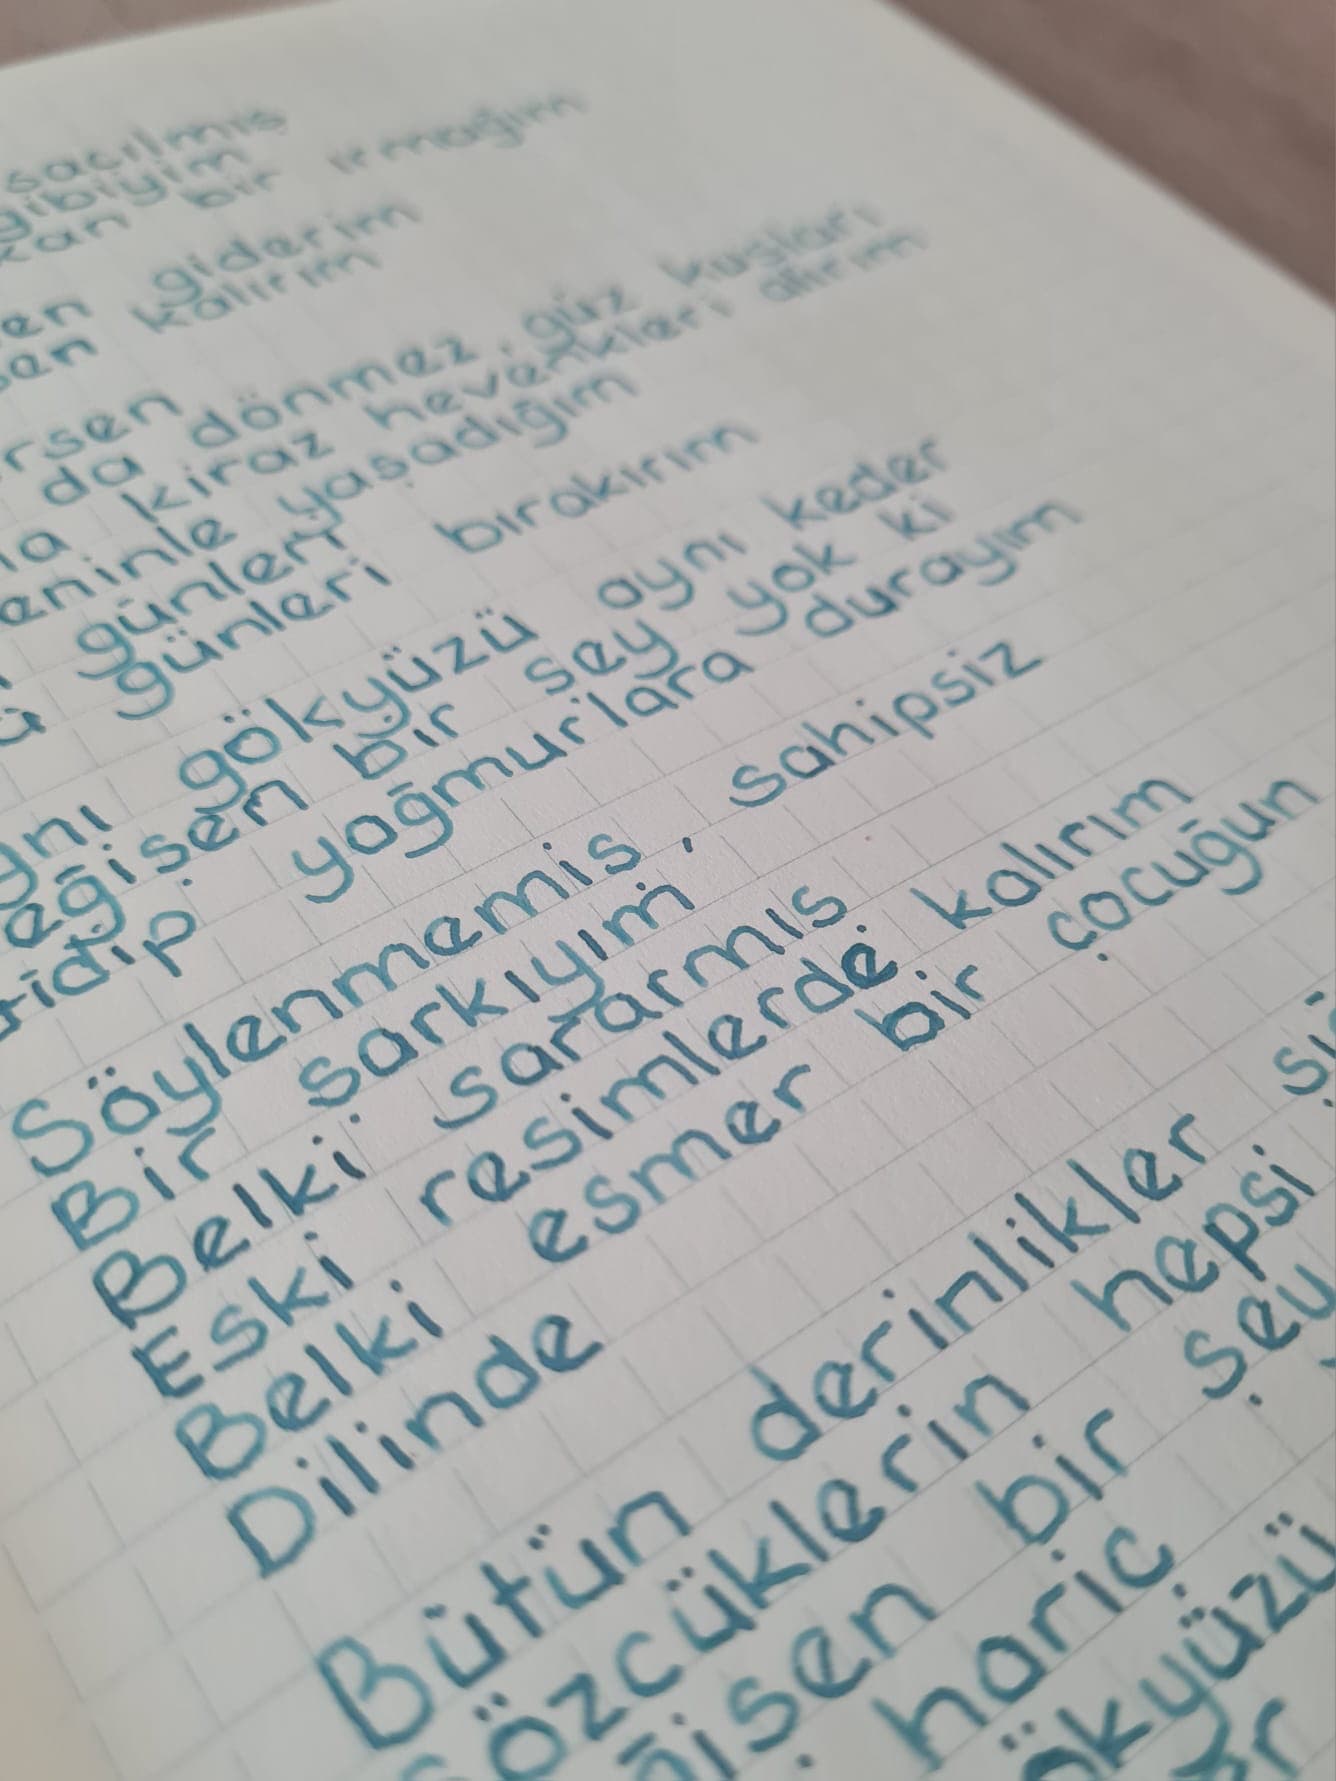 saçılmış
gibiyim
bir ırmağım
giderim
kalırım
dönmez, güz kuşları
da kiraz hevenkleri alırım
yaşadığım
günleri
günleri bırakırım
gökyüzü aynı keder
bir şey yok ki
yağmurlara durayım
Söylenmemiş, sahipsiz
Bir şarkıyım
Belki sararmış
Eski resimlerde kalırım
Belki esmer bir çocuğun
Dilinde
Bütün derinlikler
sözcüklerin hepsi
bir şey
hariç